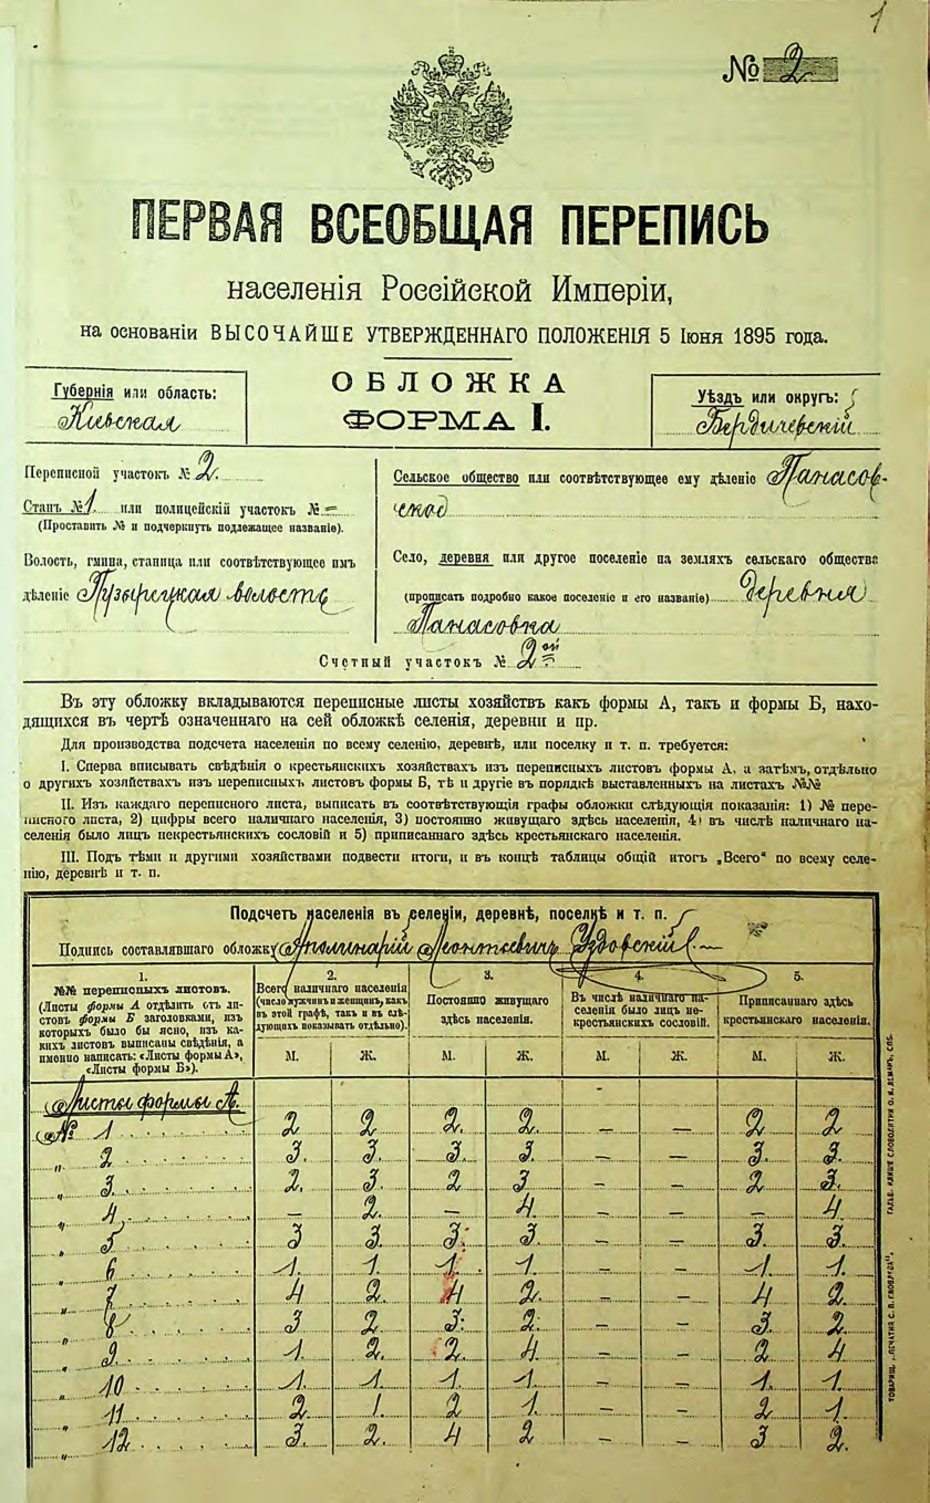 1
№ 2
ПЕРВАЯ ВСЕОБЩАЯ ПЕРЕПИСЬ
населенія Россійской Имперіи,
на основаніи ВЫСОЧАЙШЕ УТВЕРЖДЕННАГО ПОЛОЖЕНІЯ 5 Іюня 1895 года.
ОБЛОЖКА
ФОРМА I.
Губернія или область:
Кіевская
Уѣздъ или округъ:
Бердичевскій
Переписной участокъ № 2.
Станъ № 1 или полицейскій участокъ № =
(Проставить № и подчеркнуть подлежащее названіе).
Волость, гмина, станица или соотвѣтствующее имъ
дѣленіе Пузырецкая волость
Сельское общество или соотвѣтствующее ему дѣленіе Панасов-
ское
Село, деревня или другое поселеніе на земляхъ сельскаго общества
(прописать подробно какое поселеніе и его названіе) деревня
Панасовка
Счетный участокъ № 2ой
Въ эту обложку вкладываются переписные листы хозяйствъ какъ формы А, такъ и формы Б, нахо-
дящихся въ чертѣ означеннаго на сей обложкѣ селенія, деревни и пр.
Для производства подсчета населенія по всему селенію, деревнѣ, или поселку и т. п. требуется:
I. Сперва вписывать свѣдѣнія о крестьянскихъ хозяйствахъ изъ переписныхъ листовъ формы А, а затѣмъ, отдѣльно
о другихъ хозяйствахъ изъ переписныхъ листовъ формы Б, тѣ и другіе въ порядкѣ выставленныхъ на листахъ №№
II. Изъ каждаго переписного листа, выписать въ соотвѣтствующія графы обложки слѣдующія показанія: 1) № пере-
писного листа, 2) цифры всего наличнаго населенія, 3) постоянно живущаго здѣсь населенія, 4) въ числѣ наличнаго на-
селенія было лицъ некрестьянскихъ сословій и 5) приписаннаго здѣсь крестьянскаго населенія.
III. Подъ тѣми и другими хозяйствами подвести итоги, и въ концѣ таблицы общій итогъ „Всего“ по всему селе-
нію, деревнѣ и т. п.
Подсчетъ населенія въ селеніи, деревнѣ, поселкѣ и т. п.
Подпись составлявшаго обложку Аполинарій Леонтьевичъ Уздовскій
1.
№№ переписныхъ листовъ.
(Листы формы А отдѣлить отъ ли-
стовъ формы Б заголовками, изъ
которыхъ было бы ясно, изъ ка-
кихъ листовъ выписаны свѣдѣнія, а
именно написать: «Листы формы А»,
«Листы формы Б»).
2.
Всего наличнаго населенія
(число мужчинъ и женщинъ, какъ
въ этой графѣ, такъ и въ слѣ-
дующихъ показывать отдѣльно).
3.
Постоянно живущаго
здѣсь населенія.
4.
Въ числѣ наличнаго на-
селенія было лицъ не-
крестьянскихъ сословій.
5.
Приписаннаго здѣсь
крестьянскаго населенія.
М. Ж. М. Ж. М. Ж. М. Ж.
Листы формы А.
№ 1 2 2 2. 2. – – 2 2
„ 2 3. 3. 3. 3. – – 3. 3.
„ 3. 2. 3. 2 3 – – 2 3.
„ 4 – 2. – 4. – – – 4.
„ 5 3 3. 3. 3. – – 3. 3.
6 1. 1. 1. 1. – – 1. 1.
„ 7 4 2. 4 2. – – 4 2.
„ 8 3 2 3. 2. – – 3. 2
„ 9. 1. 2. 2. 4. – – 2 4
„ 10 1. 1. 1. 1. – – 1. 1.
„ 11 2. 1. 2 1. – – 2 1.
„ 12 3. 2. 4 2 – – 3 2.
ТОВАРИЩ. „ПЕЧАТНЯ С. П. ЯКОВЛЕВА“. ГАЛЬВ. КЛИШЕ СЛОВОЛИТНИ О. И. ЛЕМАНЪ, СПБ.